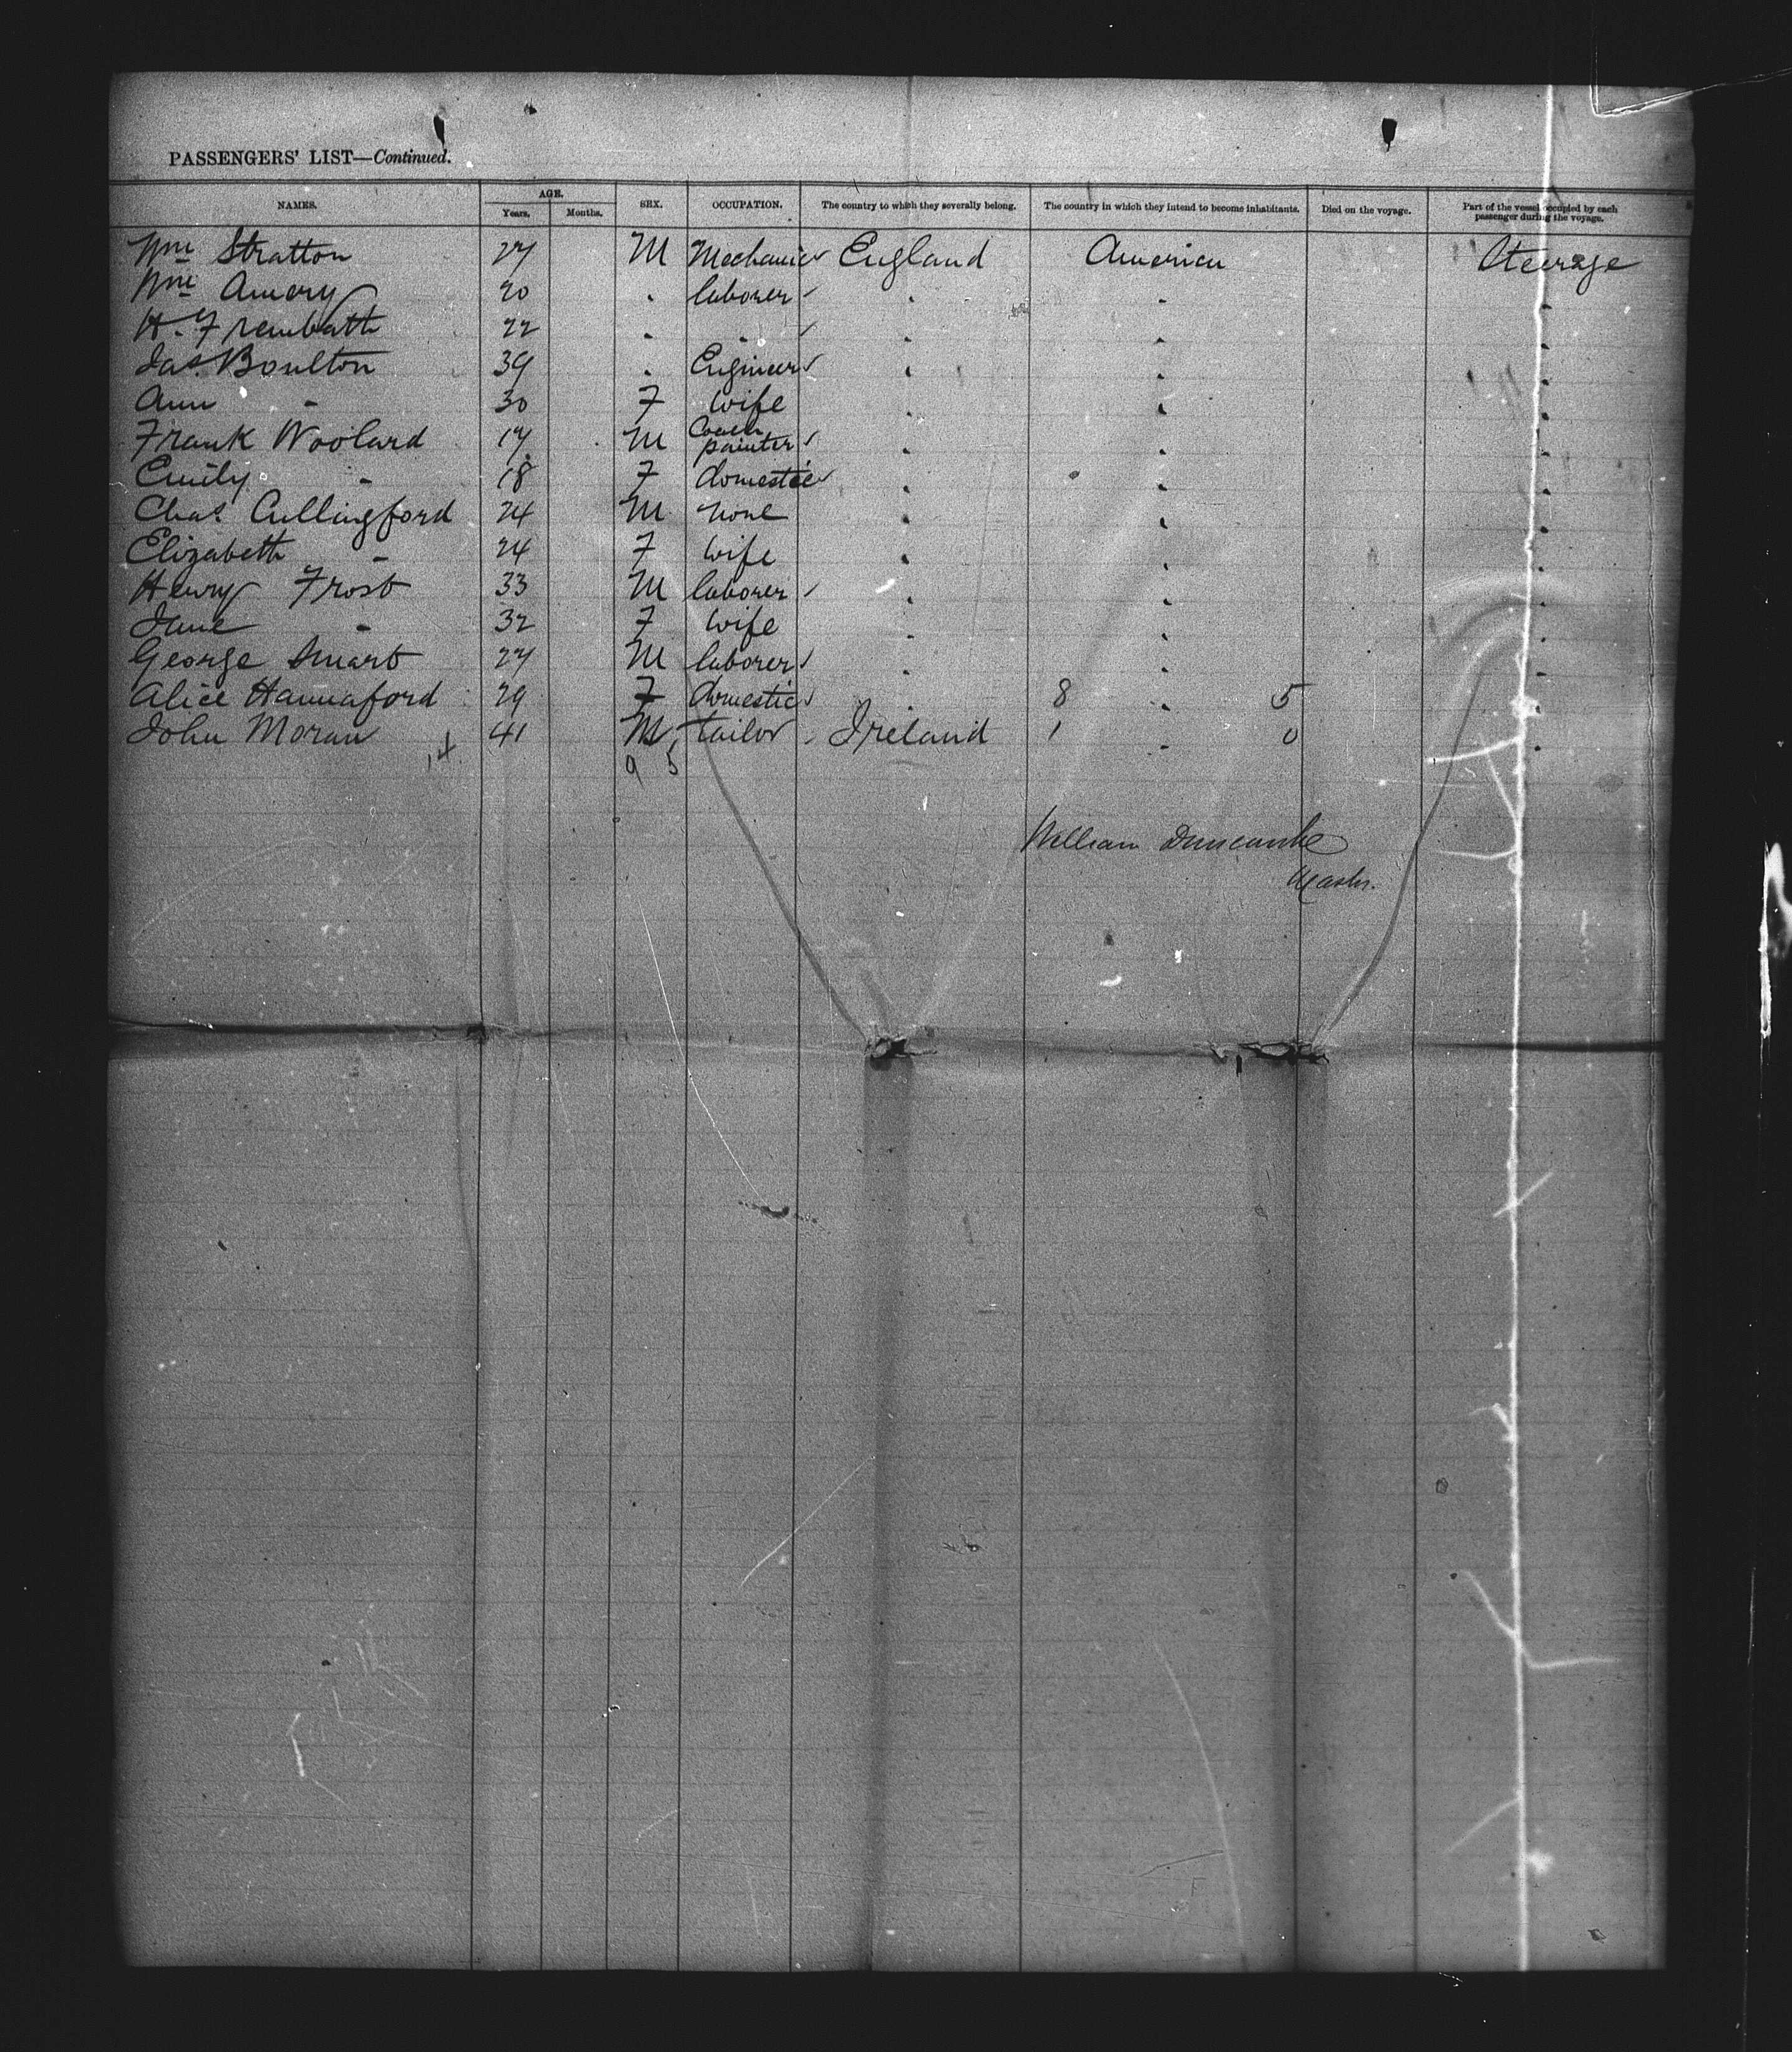 PASSENGERS' LIST—Continued.
NAMES. AGE. Years. Months. SEX. OCCUPATION. The country to which they severally belong. The country in which they intend to become inhabitants. Died on the voyage. Part of the vessel occupied by each passenger during the voyage.
Wm Stratton 27 M Mechanic England America Steerage
Wm Amory 20 . laborer . . .
H. Trembath 22 . . . . .
Jas. Boulton 39 . Engineer . . .
Ann - 30 F wife . . .
Frank Woolard 17 M Coach painter . . .
Emily - 18 F domestic . . .
Chas. Cullingford 24 M none . . .
Elizabeth - 24 F wife . . .
Henry Frost 33 M laborer . . .
Jane - 32 F wife . . .
George Smart 27 M laborer . . .
Alice Hannaford 29 F domestic . 8 . 5 .
John Moran 41 M tailor Ireland 1 . 0 .
14 9 5
William Duncombe
Master.